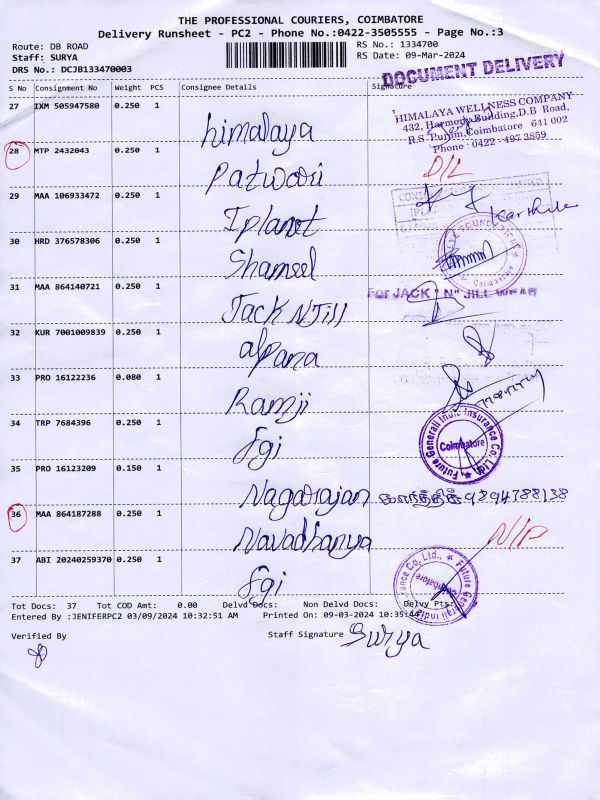 THE PROFESSIONAL COURIERS, COIMBATORE
Delivery Runsheet - PC2 - Phone No.:0422-3505555 - Page No.:3
Route: DB ROAD RS No.: 1334700
Staff: SURYA RS Date: 09-Mar-2024
DRS No.: DCJB133470003
DOCUMENT DELIVERY
S No Consignment No Weight PCS Consignee Details Signature
27 IXM 505947580 0.250 1 himalaya
HIMALAYA WELLNESS COMPANY
432, Harmony Building, D.B Road,
R.S. Puram, Coimbatore 641 002
Phone : 0422 - 497 3859
28 MTP 2432043 0.250 1 Patwari D/L
29 MAA 106933472 0.250 1 Iplanet Karthik
30 HRD 376578306 0.250 1 Shameel
31 MAA 864140721 0.250 1 Jack N Jill
For JACK " N" JILL WEAR
32 KUR 7001009839 0.250 1 alpana
33 PRO 16122236 0.080 1 Ramji
34 TRP 7684396 0.250 1 fgi
Future Generali India Insurance Co. Ltd.
Coimbatore
35 PRO 16123209 0.150 1 Nagarajan கார்த்திக் 9894788138
36 MAA 864187288 0.250 1 Navadhanya N/P
37 ABI 20240259370 0.250 1 fgi
Future Generali India Insurance Co. Ltd.,
Coimbatore
Tot Docs: 37 Tot COD Amt: 0.00 Delvd Docs: Non Delvd Docs: Delvy Pts:
Entered By :JENIFERPC2 03/09/2024 10:32:51 AM Printed On: 09-03-2024 10:35:44
Verified By Staff Signature Surya